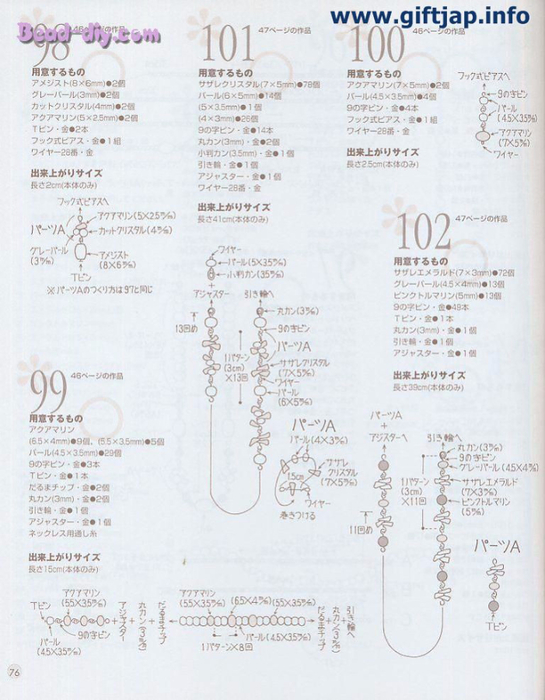 www.giftjap.info
Bead-diy.com
98
46ページの作品
用意するもの
アメジスト(8×6㎜)●2個
グレーパール(3㎜)●2個
カットクリスタル(4㎜)●2個
アクアマリン(5×2.5㎜)●2個
Tピン・金●2本
フック式ピアス・金●1組
ワイヤー28番・金
出来上がりサイズ
長さ2cm(本体のみ)
フック式ピアスへ
アクアマリン(5×2.5㎜)
カットクリスタル(4㎜)
パーツA
グレーパール
(3㎜)
アメジスト
(8×6㎜)
Tピン
※パーツAのつくり方は97と同じ
101
47ページの作品
用意するもの
サザレクリスタル(7×5㎜)●78個
パール(6×5㎜)●14個
(5×3.5㎜)●1個
(4×3㎜)●26個
9の字ピン・金●14本
丸カン(3㎜)・金●2個
小判カン(3.5㎜)・金●1個
引き輪・金●1個
アジャスター・金●1個
ワイヤー28番・金
出来上がりサイズ
長さ41cm(本体のみ)
ワイヤー
パール(5×3.5㎜)
小判カン(3.5㎜)
+
アジャスターへ
引き輪へ
丸カン(3㎜)
13回め
9の字ピン
パーツA
1パターン
(3cm)
×13回
サザレクリスタル
(7×5㎜)
ワイヤー
パール
(6×5㎜)
パーツA
パール(4×3㎜)
サザレ
クリスタル
(7×5㎜)
1.5cm
ワイヤー
巻きつける
100
46ページの作品
用意するもの
アクアマリン(7×5㎜)●2個
パール(4.5×3.5㎜)●4個
9の字ピン・金●4本
フック式ピアス・金●1組
ワイヤー28番・金
出来上がりサイズ
長さ2.5cm(本体のみ)
フック式ピアスへ
9の字ピン
パール
(4.5×3.5㎜)
アクアマリン
(7×5㎜)
ワイヤー
102
47ページの作品
用意するもの
サザレエメラルド(7×3㎜)●72個
グレーパール(4.5×4㎜)●13個
ピンクトルマリン(5㎜)●13個
9の字ピン・金●48本
Tピン・金●1本
丸カン(3㎜)・金●1個
引き輪・金●1個
アジャスター・金●1個
出来上がりサイズ
長さ39cm(本体のみ)
パーツA
+
アジャスターへ
引き輪へ
丸カン(3㎜)
9の字ピン
グレーパール(4.5×4㎜)
サザレエメラルド
(7×3㎜)
ピンクトルマリン
(5㎜)
1パターン
(3cm)
×11回
11回め
パーツA
Tピン
99
46ページの作品
用意するもの
アクアマリン
(6.5×4㎜)●9個、(5.5×3.5㎜)●5個
パール(4.5×3.5㎜)●29個
9の字ピン・金●3本
Tピン・金●1本
だるまチップ・金●2個
丸カン(3㎜)・金●2個
引き輪・金●1個
アジャスター・金●1個
ネックレス用通し糸
出来上がりサイズ
長さ15cm(本体のみ)
アクアマリン
(5.5×3.5㎜)
Tピン
9の字ピン
パール
(4.5×3.5㎜)
+アジャスター
+丸カン(3㎜)
+だるまチップ
アクアマリン
(5.5×3.5㎜)
(6.5×4㎜)
(5.5×3.5㎜)
パール(4.5×3.5㎜)
1パターン×8回
だるまチップ
+丸カン(3㎜)
+引き輪
76